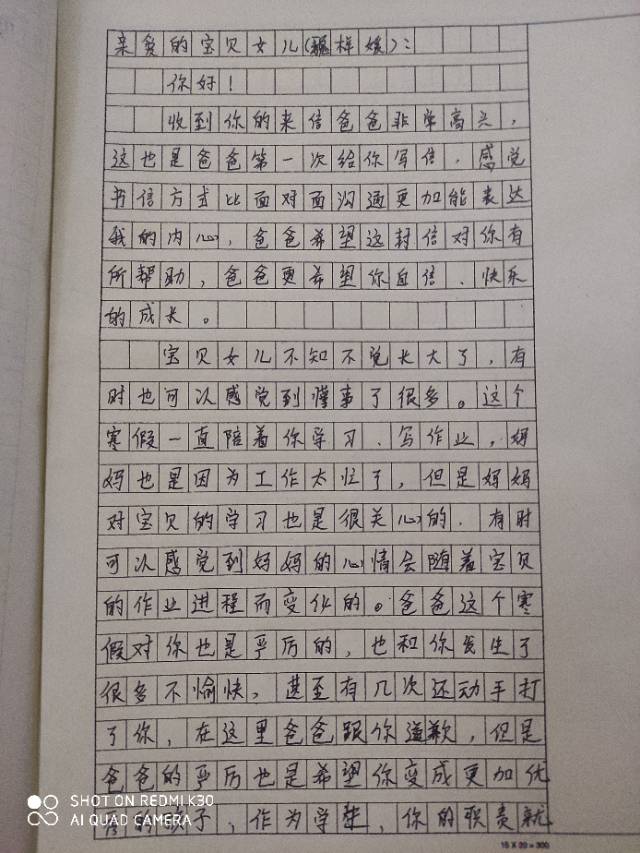 亲爱的宝贝女儿(样媛):
你好!
收到你的来信爸爸非常高兴,
这也是爸爸第一次给你写信.感觉
书信方式比面对面沟通更加能表达
我的内心,爸爸希望这封信对你有
所帮助,爸爸更希望你自信、快乐
的成长。
宝贝女儿不知不觉长大了,有
时也可以感觉到懂事了很多。这个
寒假一直陪着你学习、写作业,妈
妈也是因为工作太忙了,但是妈妈
对宝贝的学习也是很关心的.有时
可以感觉到妈妈的心情会随着宝贝
的作业进程而变化的。爸爸这个寒
假对你也是严厉的,也和你发生了
很多不愉快,甚至有几次还动手打
了你,在这里爸爸跟你道歉,但是
爸爸的严厉也是希望你变成更加优
的孩子,作为学生,你的职责就
SHOT ON REDMI K30
AI QUAD CAMERA
15 X 20 = 300